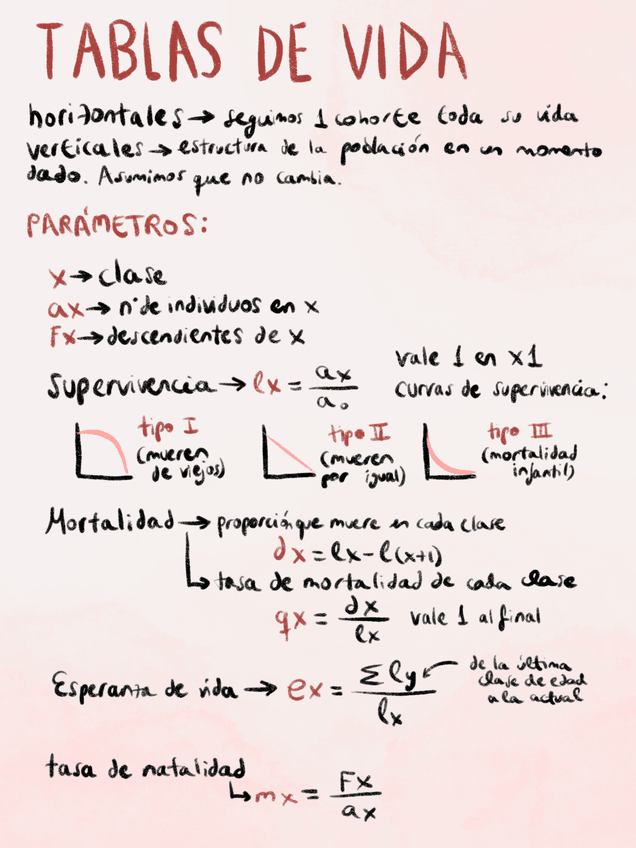 TABLAS DE VIDA
horizontales → seguimos 1 cohorte toda su vida
verticales → estructura de la población en un momento
dado. Asumimos que no cambia.
PARÁMETROS:
x → clase
ax → nº de individuos en x
Fx → descendientes de x
Supervivencia → lx = ax / a₀
vale 1 en x1
curvas de supervivencia:
tipo I
(mueren
de viejos)
tipo II
(mueren
por igual)
tipo III
(mortalidad
infantil)
Mortalidad → proporción que muere en cada clase
dx = lx - l(x+1)
↳ tasa de mortalidad de cada clase
qx = dx / lx vale 1 al final
Esperanza de vida → ex = Σ ly / lx
de la última
clase de edad
a la actual
tasa de natalidad
↳ mx = Fx / ax